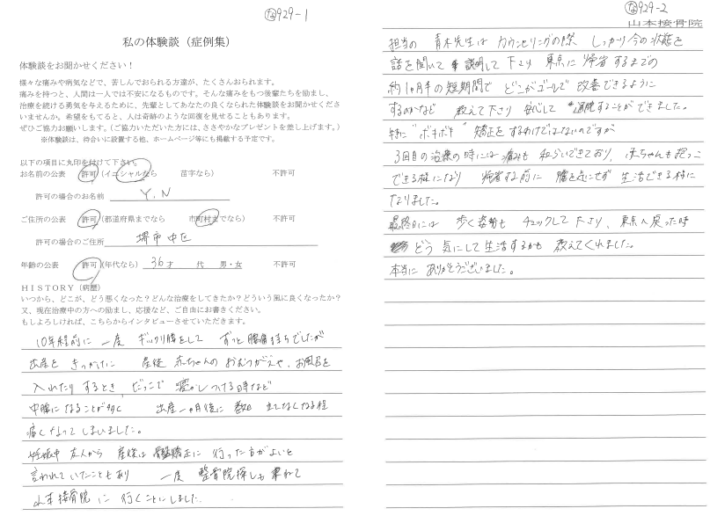 な929-1
私の体験談（症例集）
体験談をお聞かせください！
様々な痛みや病気などで、苦しんでおられる方達が、たくさんおられます。
痛みを持つと、人間は一人では不安になるものです。そんな痛みをもつ後輩たちを励まし、
治療を続ける勇気を与えるために、先輩としてあなたの良くなられた体験談をお聞かせくださ
いませんか。希望をもてると、人は奇跡のような回復を見せることもあります。
ぜひご協力お願いします。（ご協力いただいた方には、ささやかなプレゼントを差し上げます。）
※体験談は、待合いに設置する他、ホームページ等にも掲載する予定です。
以下の項目に丸印を付けて下さい。
お名前の公表　許可（イニシャルなら　苗字なら）　不許可
許可の場合のお名前　Y.N
ご住所の公表　許可（都道府県までなら　市町村までなら）　不許可
許可の場合のご住所　堺市中区
年齢の公表　許可（年代なら）　36才　代　男・女　不許可
HISTORY（病歴）
いつから、どこが、どう悪くなった？どんな治療をしてきたか？どういう風に良くなったか？
又、現在治療中の方への励まし、応援など、ご自由にお書きください。
もしよろしければ、こちらからインタビューさせていただきます。
10年程前に 一度 ギックリ腰をして ずっと腰痛持ちでしたが
出産を きっかけに 産後 赤ちゃんの おむつがえや、お風呂を
入れたり するとき、だっこで 寝かしつける時など
中腰になることが多く 出産一ヶ月後に 立てなくなる程
痛くなってしまいました。
妊娠中 友人から 産後は 骨盤矯正に 行った方がよいと
言われていたこともあり 一度 整骨院探しも兼ねて
山本接骨院に 行くことにしました。
な929-2
山本接骨院
担当の 青木先生は カウンセリングの際、しっかり今の状態を
話を聞いて 説明して下さり 東京に 帰省するまでの
約1ヵ月半の短期間で どこがゴールで 改善できるように
するのかなど 教えて下さり 安心して 通院することができました。
特に "ボキボキ" 矯正をするわけではないのですが
3回目の治療の時には 痛みも 和らいできており、赤ちゃんも抱っこ
できる様になり 帰省する前に 腰を気にせず 生活できる様に
なりました。
最終日には 歩く姿勢も チェックして下さり、東京へ戻った時
どう 気にして生活するかも 教えてくれました。
本当に ありがとうございました。